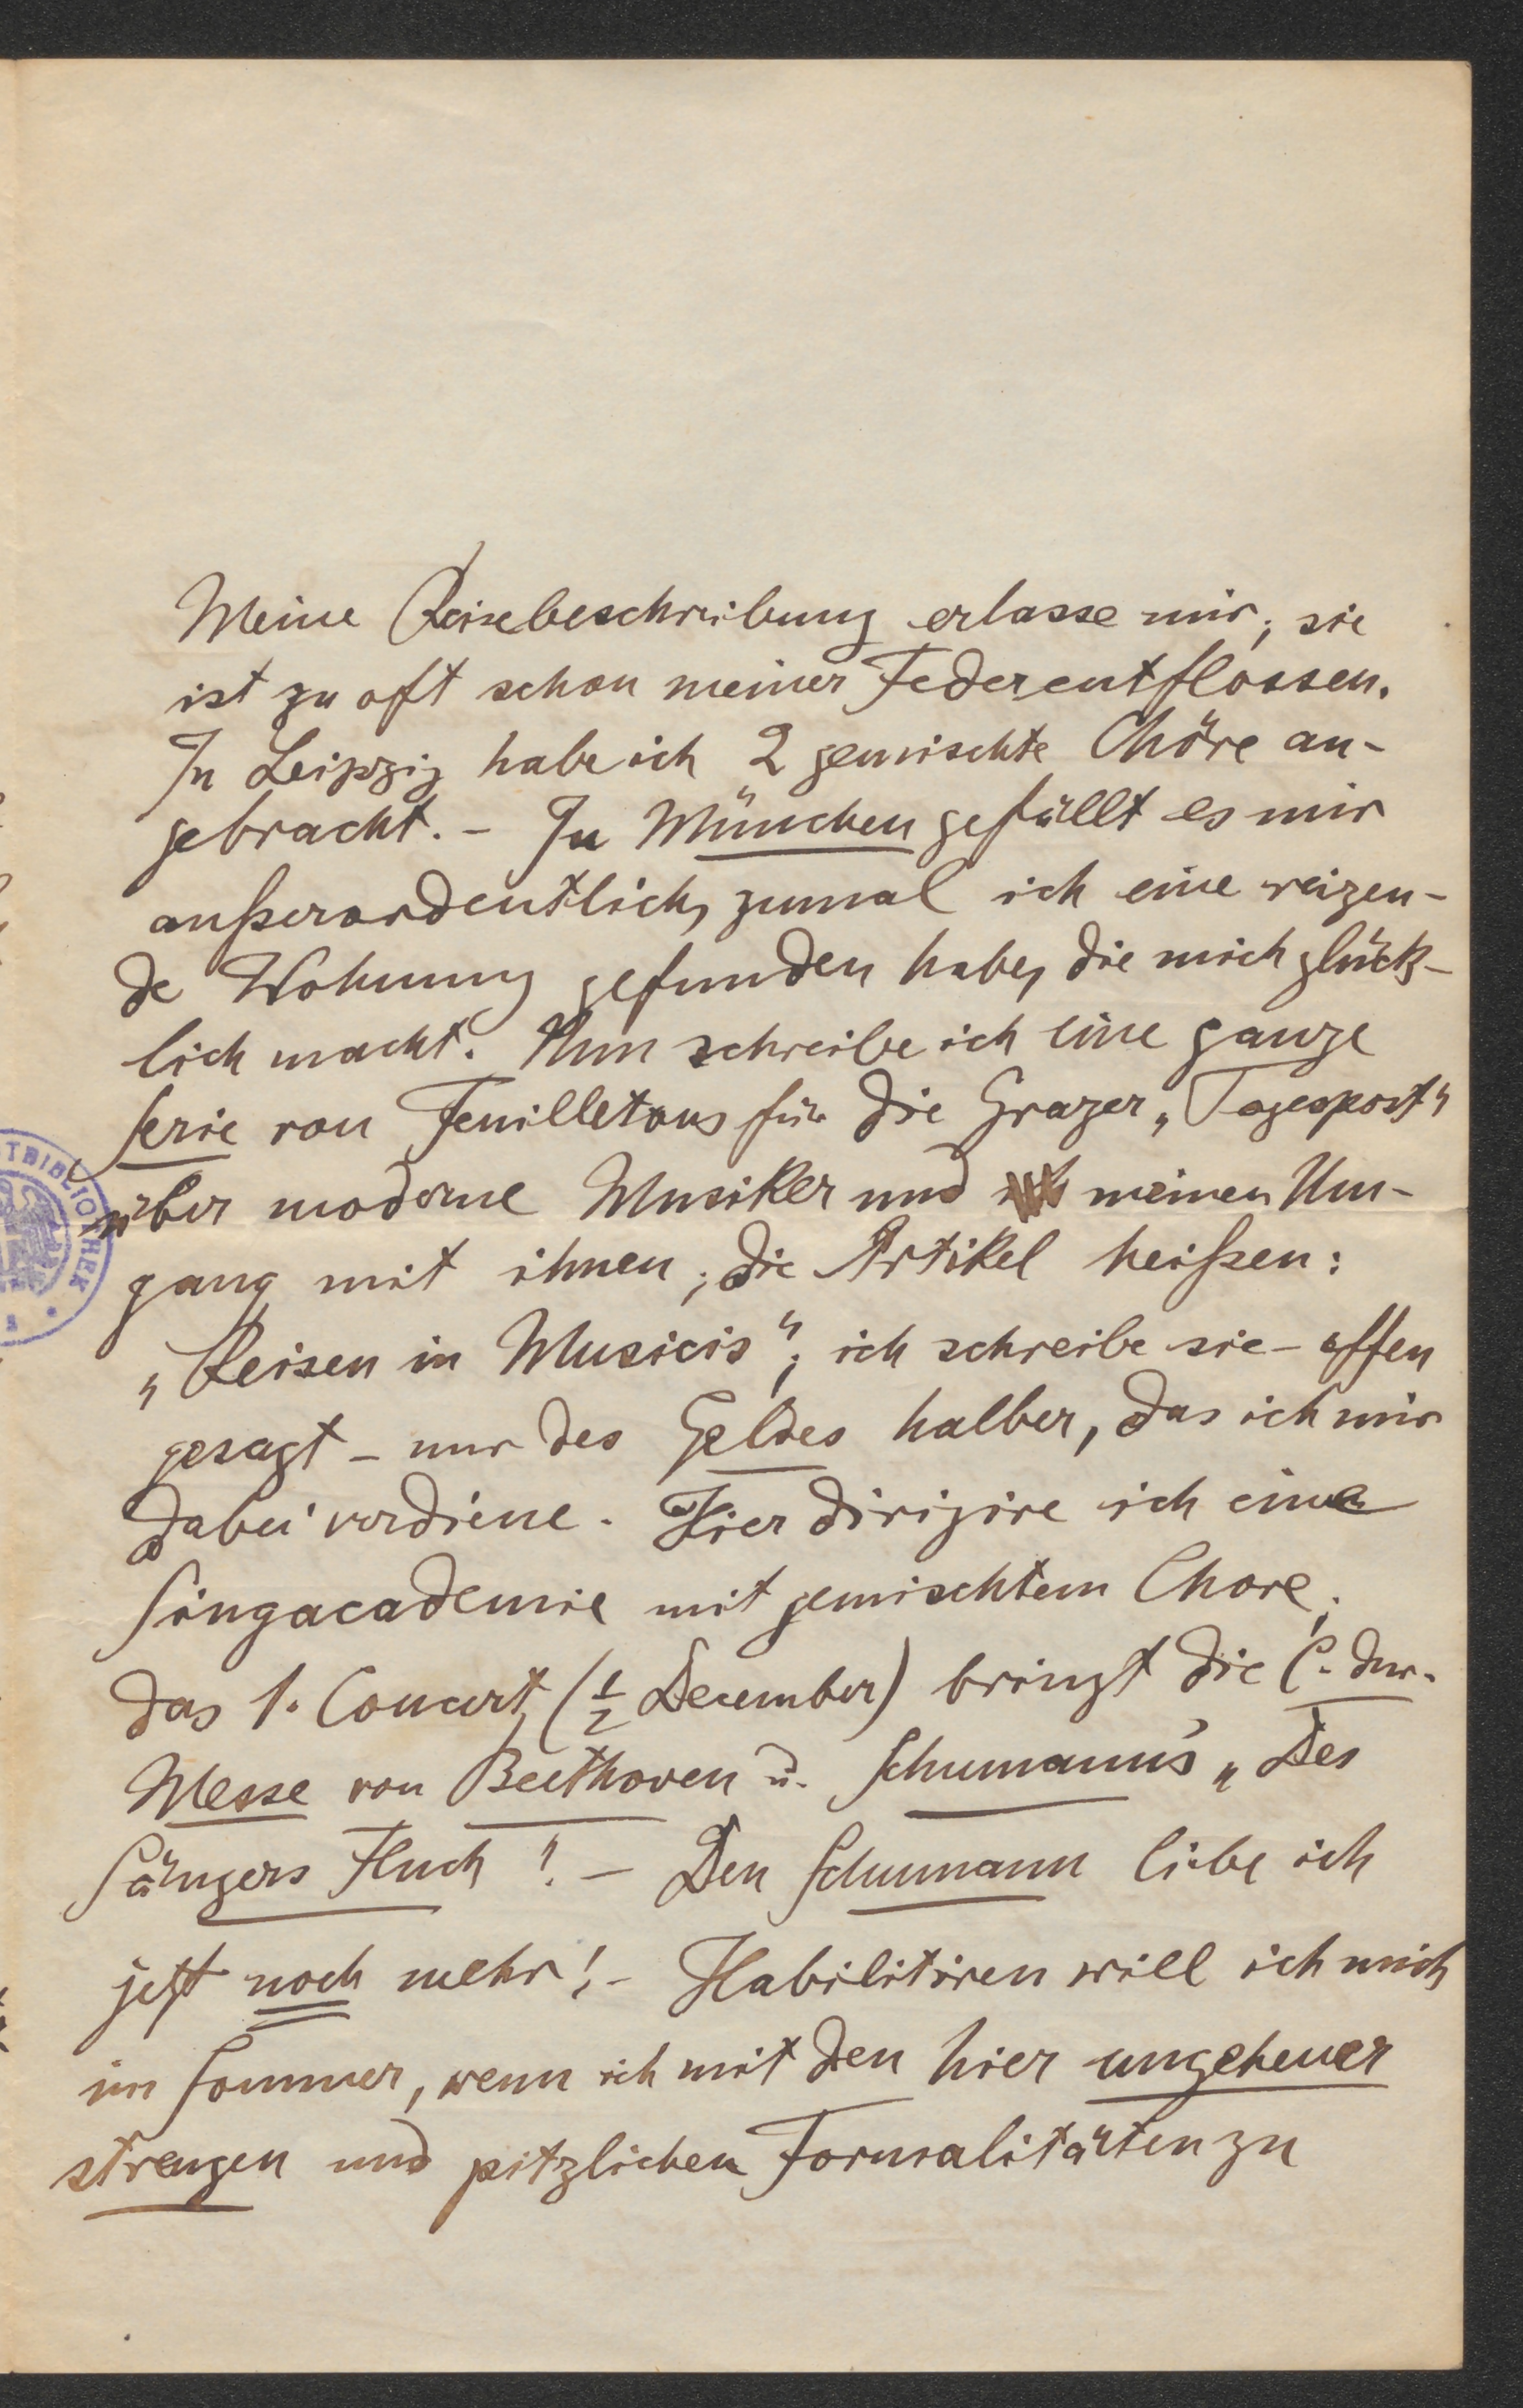 Meine Reisebeschreibung erlasse mir; sie
ist zu oft schon meiner Feder entflossen.
In Leipzig habe ich 2 gemischte Chöre an-
gebracht. – In München gefällt es mir
außerordentlich, zumal ich eine reizen-
de Wohnung gefunden habe, die mich glück-
lich macht. Nun schreibe ich eine ganze
Serie von Feuilletons für die Grazer „Tagespost"
über moderne Musiker und meinen Um-
gang mit ihnen; die Artikel heißen:
„Reisen in Musicis"; ich schreibe sie – offen
gesagt – nur des Geldes halber, das ich mir
dabei verdiene. Hier dirigire ich eine
Singacademie mit gemischtem Chore;
das 1. Concert, (1/2 December) bringt die C-dur-
Messe von Beethoven u. Schumann's „Des
Sängers Fluch"! – Den Schumann liebe ich
jetzt noch mehr! – Habilitiren will ich mich
im Sommer, wenn ich mit den hier ungeheuer
strengen und pitzlichen Formalitäten zu
TBIBLIOTHEK